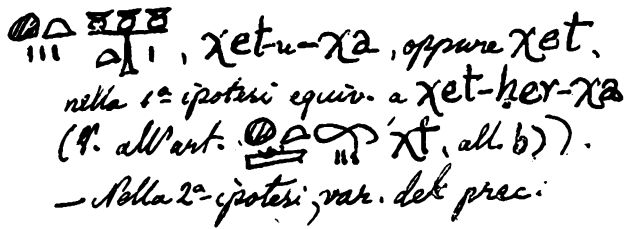 , χet-u-χa, oppure χet,
nella 1ª ipotesi equiv. a χet-ḥer-χa
(V. all'art. χt, all. b)).
— Nella 2ª ipotesi, var. del prec: